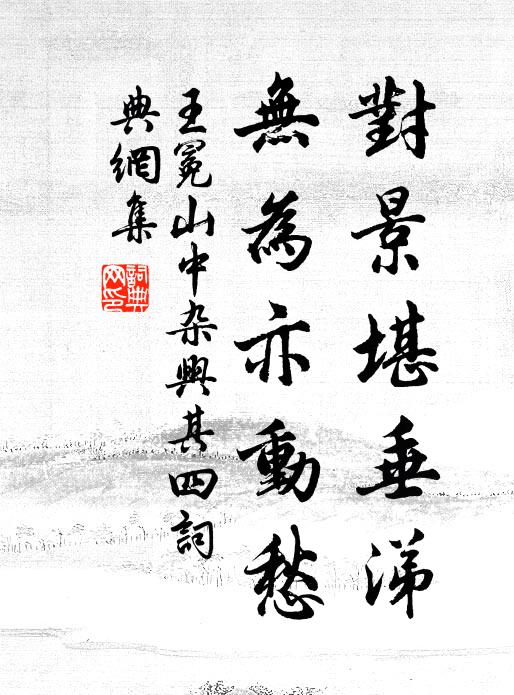 對景堪垂涕
無為亦動愁
王冕山中杂興其四詞
典網集
詞典
网印